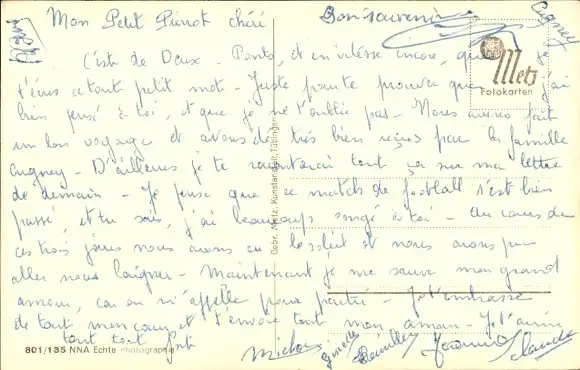 Mon Petit Pierrot chéri
Bon souvenir
Cugney
C'est de Deux-Ponts, et en vitesse encore, que je
t'écris ce tout petit mot - Juste pour te prouver que j'ai
bien pensé à toi, et que je ne t'oublie pas - Nous avons fait
un bon voyage et avons été très bien reçus par la famille
Cugney - D'ailleurs je te raconterai tout ça sur ma lettre
de demain - Je pense que ce match de football s'est bien
passé, et tu sais, j'ai beaucoup songé à toi - Au cours de
ces trois jours nous avons eu le soleil et nous avons pu
aller nous baigner - Maintenant je me sauve mon grand
amour, car on m'appelle pour partir - Je t'embrasse
de tout mon cœur et t'envoie tout mon amour - Je t'aime
tout tout fort
Ginette
Jeannine
Claude
Metz
Fotokarten
Gebr. Metz, Kunstanstalt, Tübingen
801/135 NNA Echte Photographie